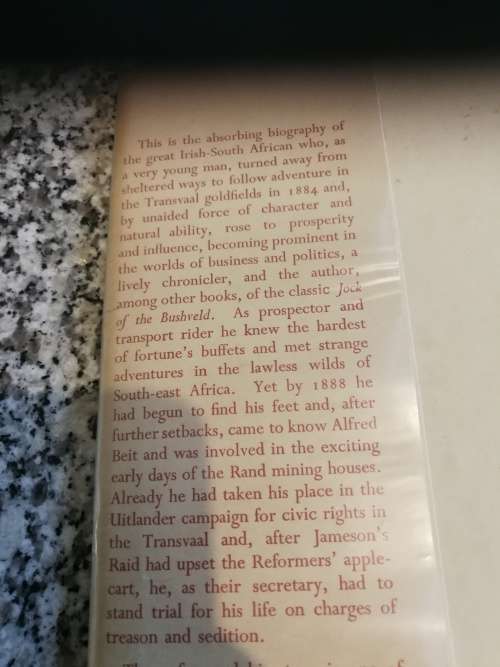 This is the absorbing biography of
the great Irish-South African who, as
a very young man, turned away from
sheltered ways to follow adventure in
the Transvaal goldfields in 1884 and,
by unaided force of character and
natural ability, rose to prosperity
and influence, becoming prominent in
the worlds of business and politics, a
lively chronicler, and the author,
among other books, of the classic Jock
of the Bushveld. As prospector and
transport rider he knew the hardest
of fortune's buffets and met strange
adventures in the lawless wilds of
South-east Africa. Yet by 1888 he
had begun to find his feet and, after
further setbacks, came to know Alfred
Beit and was involved in the exciting
early days of the Rand mining houses.
Already he had taken his place in the
Uitlander campaign for civic rights in
the Transvaal and, after Jameson's
Raid had upset the Reformers' apple-
cart, he, as their secretary, had to
stand trial for his life on charges of
treason and sedition.